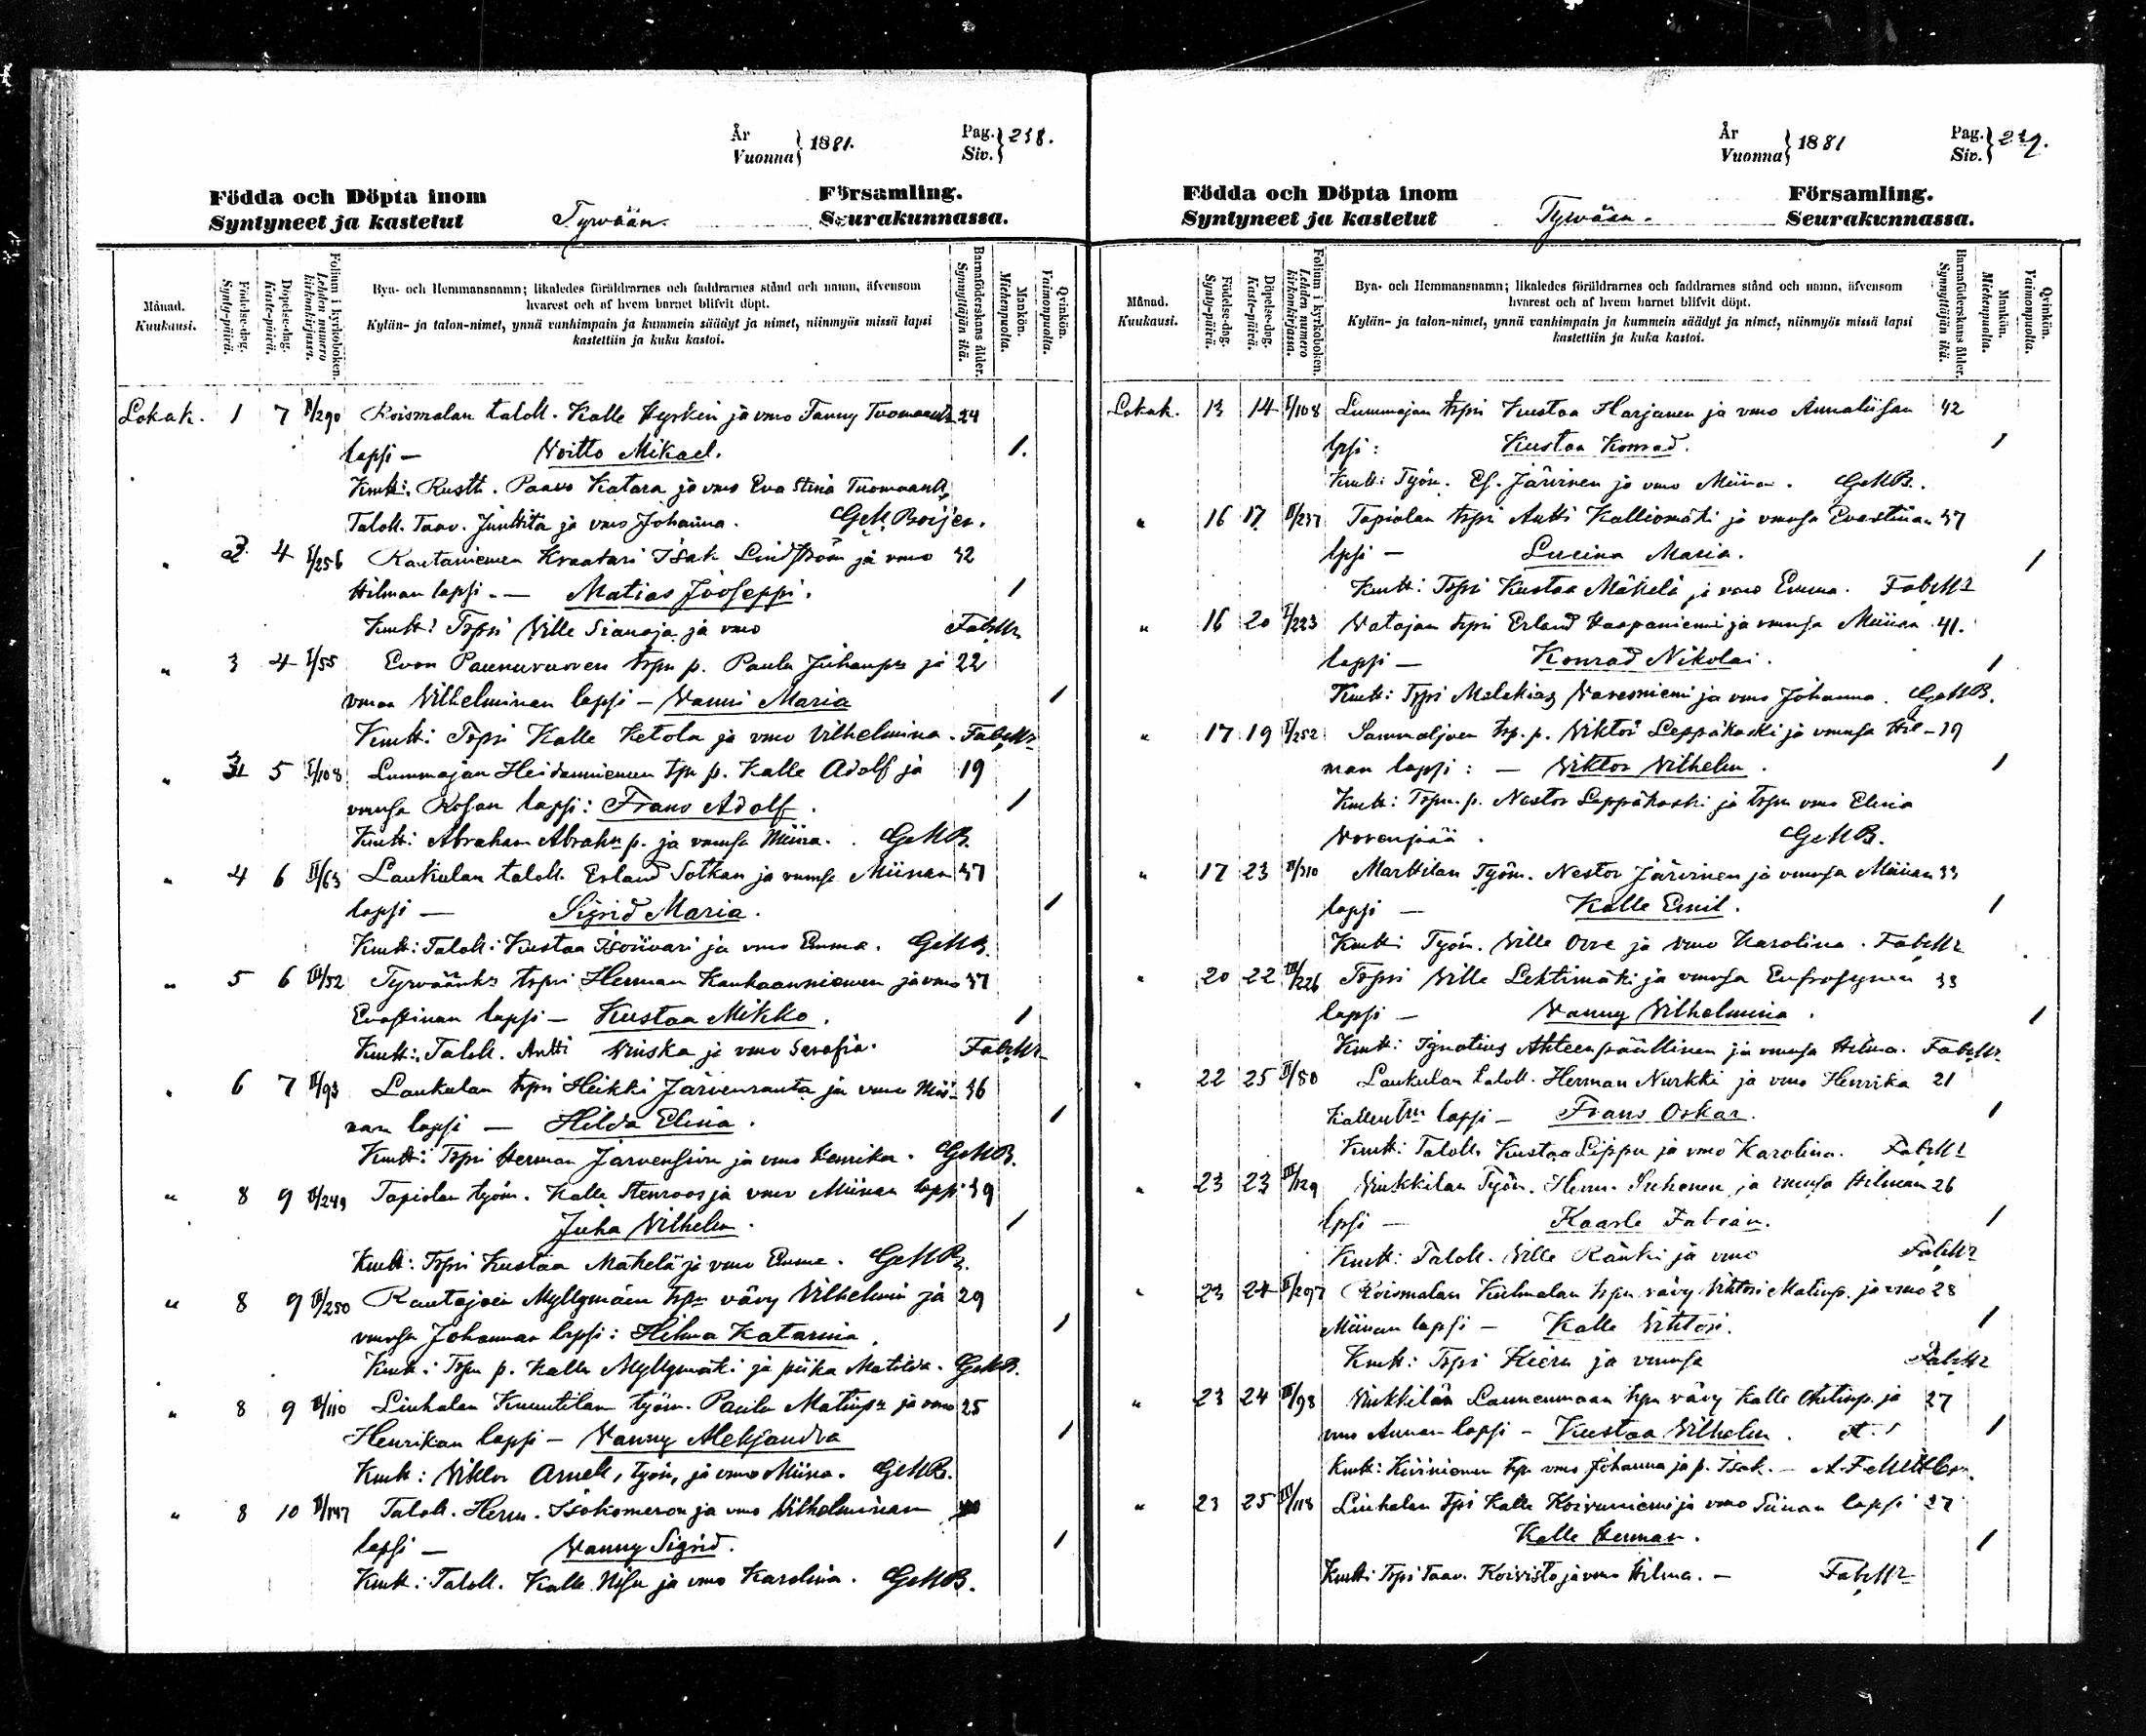 År
Vuonna } 1881.
Pag.
Siv. } 238.
Födda och Döpta inom Församling.
Syntyneet ja kastetut Tyrvään. Seurakunnassa.
Månad.
Kuukausi.
Födelse-dag.
Synty-päivä.
Döpelse-dag.
Kaste-päivä.
Folium i kyrkoboken.
Lehden numero kirkonkirjassa.
Bya- och Hemmansnamn; likaledes föräldrarnes och faddrarnes stånd och namn, äfvensom
hvarest och af hvem barnet blifvit döpt.
Kylän- ja talon-nimet, ynnä vanhimpain ja kummein säädyt ja nimet, niinmyös missä lapsi
kastettiin ja kuka kastoi.
Barnaföderskans ålder.
Synnyttäjän ikä.
Mankön.
Miehenpuolta.
Qvinkön.
Vaimonpuolta.
Lokak. 1 7 II/290 Roismalan taloll. Kalle Hyrkin ja vmo Fanny 24
lapsi — Woitto Mikael. 1.
Kmtt: Rustt. Paavo Katara ja vmo Eva Stina
Taloll. Taav. Junttila ja vmo Johanna. GMBoijer.
" 2 4 I/256 Rautaniemen Kraatari Isak Lindström ja vmo 32
Hilman lapsi. — Matias Jooseppi. 1
Kmtt: Torpri Wille Sianoja ja vmo
" 3 4 I/55 Evon p. Paulu Juhanpn ja 22
vmon Wilhelminan lapsi — Wanni Maria 1
Kmtt: Torpri Kalle Ketola ja vmo Vilhelmina.
" 3 5 I/108 Lummajan Heidanniemen tpn p. Kalle Adolf ja 19
vmnsa Rosan lapsi: Frans Adolf. 1
Kmtt: Abraham Abrahn p. ja vmnsa Miina. GMB.
" 4 6 II/63 Laukulan taloll. Erland Sotkan ja vmnsa Miinan 37
lapsi — Sigrid Maria. 1
Kmtt: Taloll: Kustaa Isoiivari ja vmo Emma. GMB.
" 5 6 III/52 Herman Kaukaanniemen ja vmo 37
Evastinan lapsi — Kustaa Mikko. 1
Kmtt: Taloll. Antti Winska ja vmo Serafia.
" 6 7 II/93 Laukulan trpri Heikki Järvenranta ja vmo Mii- 36
nan lapsi — Hilda Elina. 1
Kmtt: Trpri Herman Järvensivu ja vmo Henrika. GMB.
" 8 9 II/249 Tapiolan työm. Kalle Stenroos ja vmo Miinan lapsi 39
Juha Wilhelm. 1
Kmtt: Trpri Kustaa Mäkelä ja vmo Emma. GMB.
" 8 9 II/250 Rautajoen Myllymäen trpn vävy Wilhelmin ja 29
vmnsa Johannan lapsi: Hilma Katarina. 1
Kmtt: Trpn p. Kalle Myllymäki ja piika Matilda. GMB.
" 8 9 II/110 Liuhalan Kuuntilan työm. Paulu Matinpn ja vmo 25
Henrikan lapsi — Wanny Aleksandra 1
Kmtt: Wiktor Arnell, työm, ja vmo Miina. GMB.
" 8 10 II/147 Taloll. Herm. Isokomeron ja vmo Wilhelminan
lapsi — Wanny Sigrid. 1
Kmtt: Taloll. Kalle ja vmo Karolina. GMB.
År
Vuonna } 1881
Pag.
Siv. } 239.
Födda och Döpta inom Församling.
Syntyneet ja kastetut Tyrvään. Seurakunnassa.
Månad.
Kuukausi.
Födelse-dag.
Synty-päivä.
Döpelse-dag.
Kaste-päivä.
Folium i kyrkoboken.
Lehden numero kirkonkirjassa.
Bya- och Hemmansnamn; likaledes föräldrarnes och faddrarnes stånd och namn, äfvensom
hvarest och af hvem barnet blifvit döpt.
Kylän- ja talon-nimet, ynnä vanhimpain ja kummein säädyt ja nimet, niinmyös missä lapsi
kastettiin ja kuka kastoi.
Barnaföderskans ålder.
Synnyttäjän ikä.
Mankön.
Miehenpuolta.
Qvinkön.
Vaimonpuolta.
Lokak. 13 14 I/108 Lummajan trpri Kustaa Harjanen ja vmo Annaliisan 42
lpsi: Kustaa Konrad. 1
Kmtt: Työm. Ef. Järvinen ja vmo Miina. GMB.
" 16 17 II/237 Tapiolan trpri Antti Kalliomäki ja vmnsa Evastinan 37
lpsi — Lucina Maria. 1
Kmtt: Trpri Kustaa Mäkelä ja vmo Emma.
" 16 20 I/223 Watajan trpri Erland Haapaniemi ja vmnsa Miinan 41.
lapsi — Konrad Nikolai. 1
Kmtt: Trpri Malakias Waresniemi ja vmo Johanna. GMB.
" 17 19 I/252 Sammaljoen trp. p. Wiktor Leppäkoski ja vmnsa Hil- 19
man lapsi: — Wiktor Wilhelm. 1
Kmtt: Trpn p. Nestor Leppäkoski ja trpn vmo Elina
Worenpää. GMB.
" 17 23 II/310 Marttilan Työm. Nestor Järvinen ja vmnsa Miinan 33
lapsi — Kalle Emil. 1
Kmtt: Työm. Wille Orre ja vmo Karolina.
" 20 22 III/226 Trpri Wille Lehtimäki ja vmnsa Eufrosynen 33
lapsi — Wanny Wilhelmina. 1
Kmtt: Ignatius Ahteenpäällinen ja vmnsa Hilma.
" 22 25 II/80 Laukulan taloll. Herman Nurkki ja vmo Henrika 21
lapsi — Frans Oskar. 1
Kmtt: Taloll. Kustaa Lippu ja vmo Karolina.
" 23 23 III/129 Winkkilan Työm. Herm. Suhonen ja vmnsa Hilman 26
lpsi — Kaarle Fabian. 1
Kmtt: Taloll. Wille Ränki ja vmo
" 23 24 II/297 Roismalan Kulmalan trpn vävy Wihtori Matinp. ja vmo 28
Miinan lapsi — Kalle Wihtori. 1
Kmtt: Trpri Hiern ja vmnsa
" 23 24 III/98 Winkkilän Launenmaan trpn vävy Kalle Antinp. ja 27
vmo Annan lapsi — Kustaa Wilhelm. 1
Kmtt: Kiiniemen trpn vmo Johanna ja p. Isak. —
" 23 25 III/118 Liuhalan Trpri Kalle Koivuniemi ja vmo Siinan lapsi 27
Kalle Herman. 1
Kmtt: Trpri Taav. Koivisto ja vmo Hilma. —